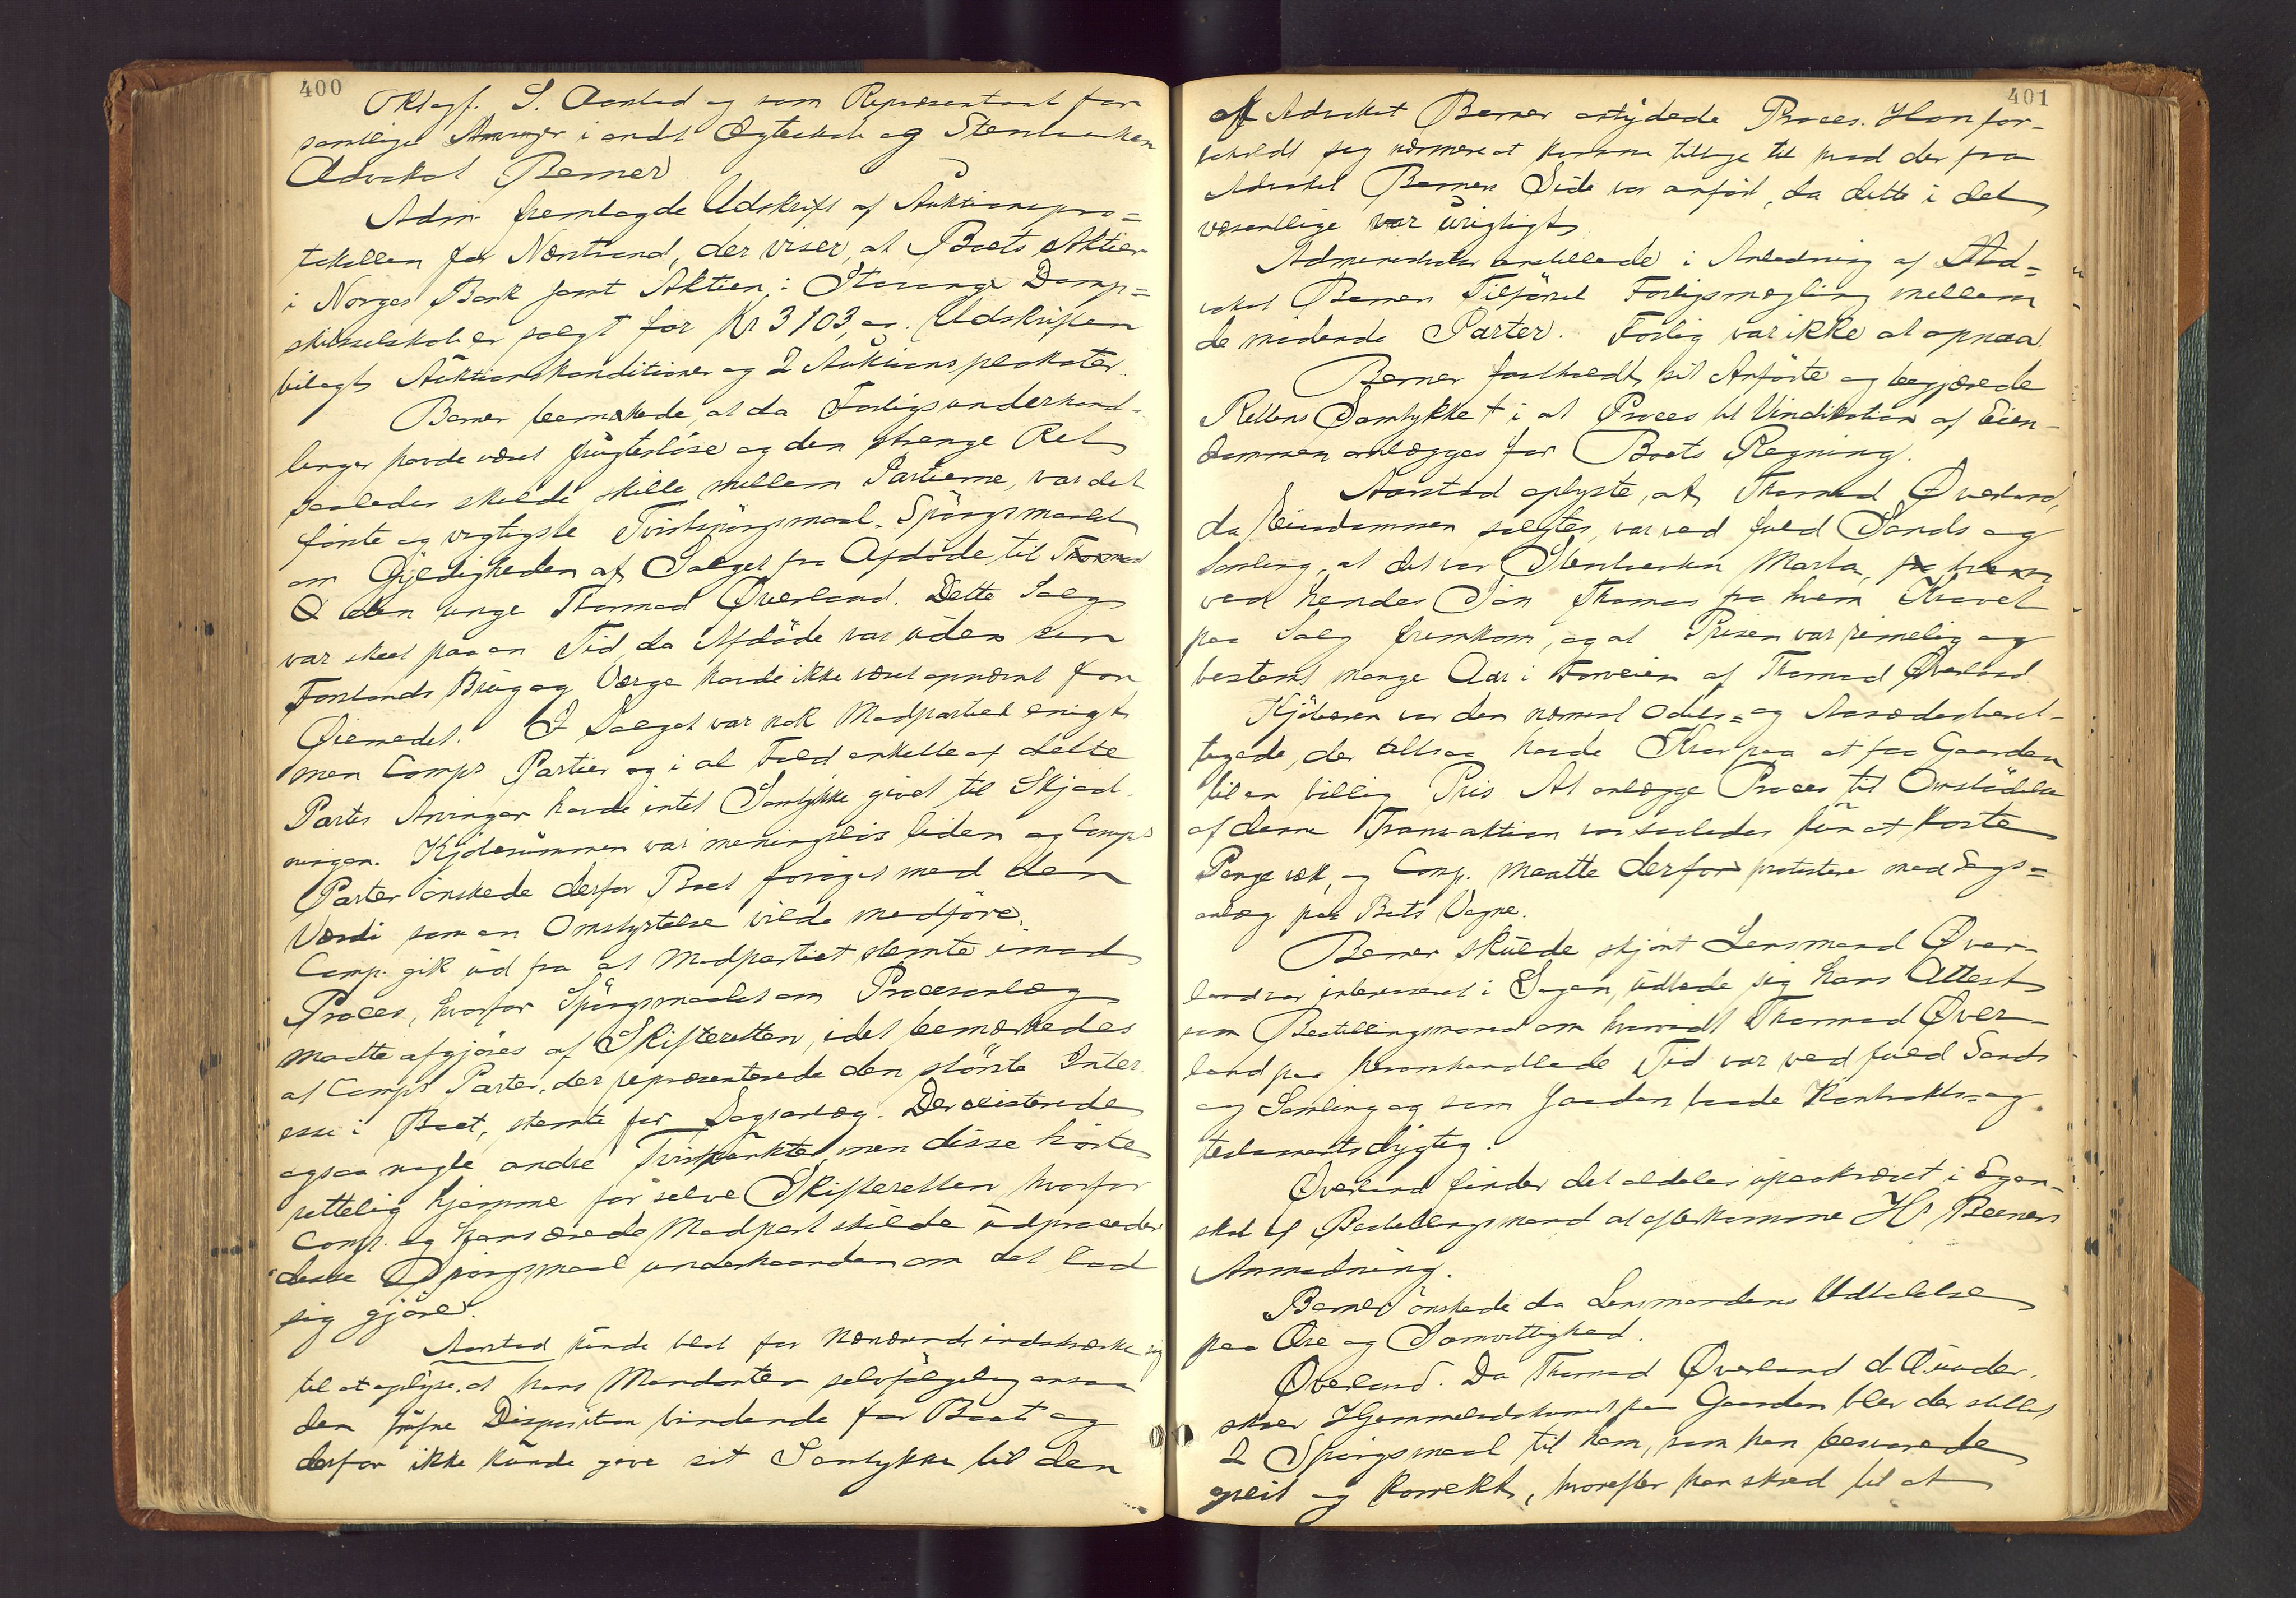 400
Oktagf. S. Aarstad og som Repræsentant for
samtlige Arvinger i andet Ægteskab og Stervboenken
Advokat Berner
Adm. fremlagde Udskrift af Auktionspro=
tokollen for Nærstrand, der viser, at Boets Aktier
i Norges Bank samt Aktien i Stavanger Damp=
skibsselskab er solgt for Kr 3103,00. Udskriften
bilagt Auktionskonditioner og 2 Auktionsplakater.
Berner bemærkede, at da Forligsunderhand-
linger havde været frugtesløse og den strenge Ret
saaledes skulde skille mellem Partierne, var det
første og vigtigste Tvistspørgsmaal, Spørgsmaalet
om Gyldigheden af Salget fra Afdøde til Thormod
Ø den unge Thormod Øverland. Dette Salg
var skeet paa en Tid, da Afdøde var uden sin
Forstands Brug og Værge havde ikke været opnævnt for
Øiemedet. I Salget var nok Modpartiet enigt
men Comps Partier og i al Fald enkelte af dette
Partis Arvinger havde intet Samtykke givet til Skjød-
ningen. Kjøbesummen var meningsløs liden og Comps
Parter ønskede derfor Boet forøget med den
Værdi som en Omstyrtelse vilde medføre.
Comp. gik ud fra at Modpartiet stemte imod
Proces, hvorfor Spørgsmaalet om Processanlæg
maatte afgjøres af Skifteretten, idet bemærkedes
at Comps Parter, der repræsenterede den største Inter-
esse i Boet, stemte for Sagsanlæg. Der existerede
ogsaa nogle andre Tvistpunkter, men disse hørte
rettelig hjemme for selve Skifteretten hvorfor
Comp. og hans ærede Modpart skulde udprocedere
disse Spørgsmaal underhaanden om det lod
sig gjøre.
Aarstad kunde blot for nærværende indskrænke sig
til at oplyse, at hans Mandanter selvfølgelig ansaa
den Disposition bindende for Boet og
derfor ikke kunde give sit Samtykke til den
401
af Advokat Berner antydede Proces. Han for-
beholdt sig nærmere at komme tilbage til hvad der fra
Advokat Berners Side var anført, da dette i det
væsentlige var urigtigt.
Administrator anstillede i Anledning af Ad=
vokat Berners Tilførsel Forligsmægling mellem
de mødende Parter. Forlig var ikke at opnaa.
Berner fastholdt sit Anførte og begjærede
Rettens Samtykke t i at Proces til Vindikation af Eien-
dommen anlægges for Boets Regning.
Aarstad oplyste, at Thormod Øverland,
da Eiendommen solgtes, var ved fuld Sands og
Samling, at det var Stervboenken Marta,
ved hendes Søn Thomas fra hvem Kravet
paa Salg fremkom, og at Prisen var rimelig og
bestemt mange Aar i Forveien af Thormod Øverland
Kjøberen var den nærmest Odels= og Aasædesberet-
tigede, der altsaa havde Krav paa at faa Gaarden
til en billig Pris. At anlægge Proces til Omstødelse
af denne Transaktion var saaledes kun at kaste
Penge væk, og Comp. maatte derfor protestere mod Sags=
anlæg paa Boets Vegne.
Berner skulde skjønt Lensmand Øver-
land var interesseret i Sagen, udbede sig hans Attest
som Bestillingsmand om hvorvidt Thormod Øver-
land paa heromhandlede Tid var ved fuld Sands
og Samling og som saadan baade Kontrakts= og
testamentsdygtig.
Øverland finder det aldeles upaakrævet i Egen-
skab af Bestillingsmand at efterkomme Hr Berners
Anmodning.
Berner ønskede da Lensmandens Udtalelse
paa Ære og Samvittighed.
Øverland. Da Thormod Øverland d.Æ. under-
skrev Hjemmelsdokumentet paa Gaarden blev der stillet
2 Spørgsmaal til ham, som han besvarede
greit og korrekt, hvorefter han skred til at